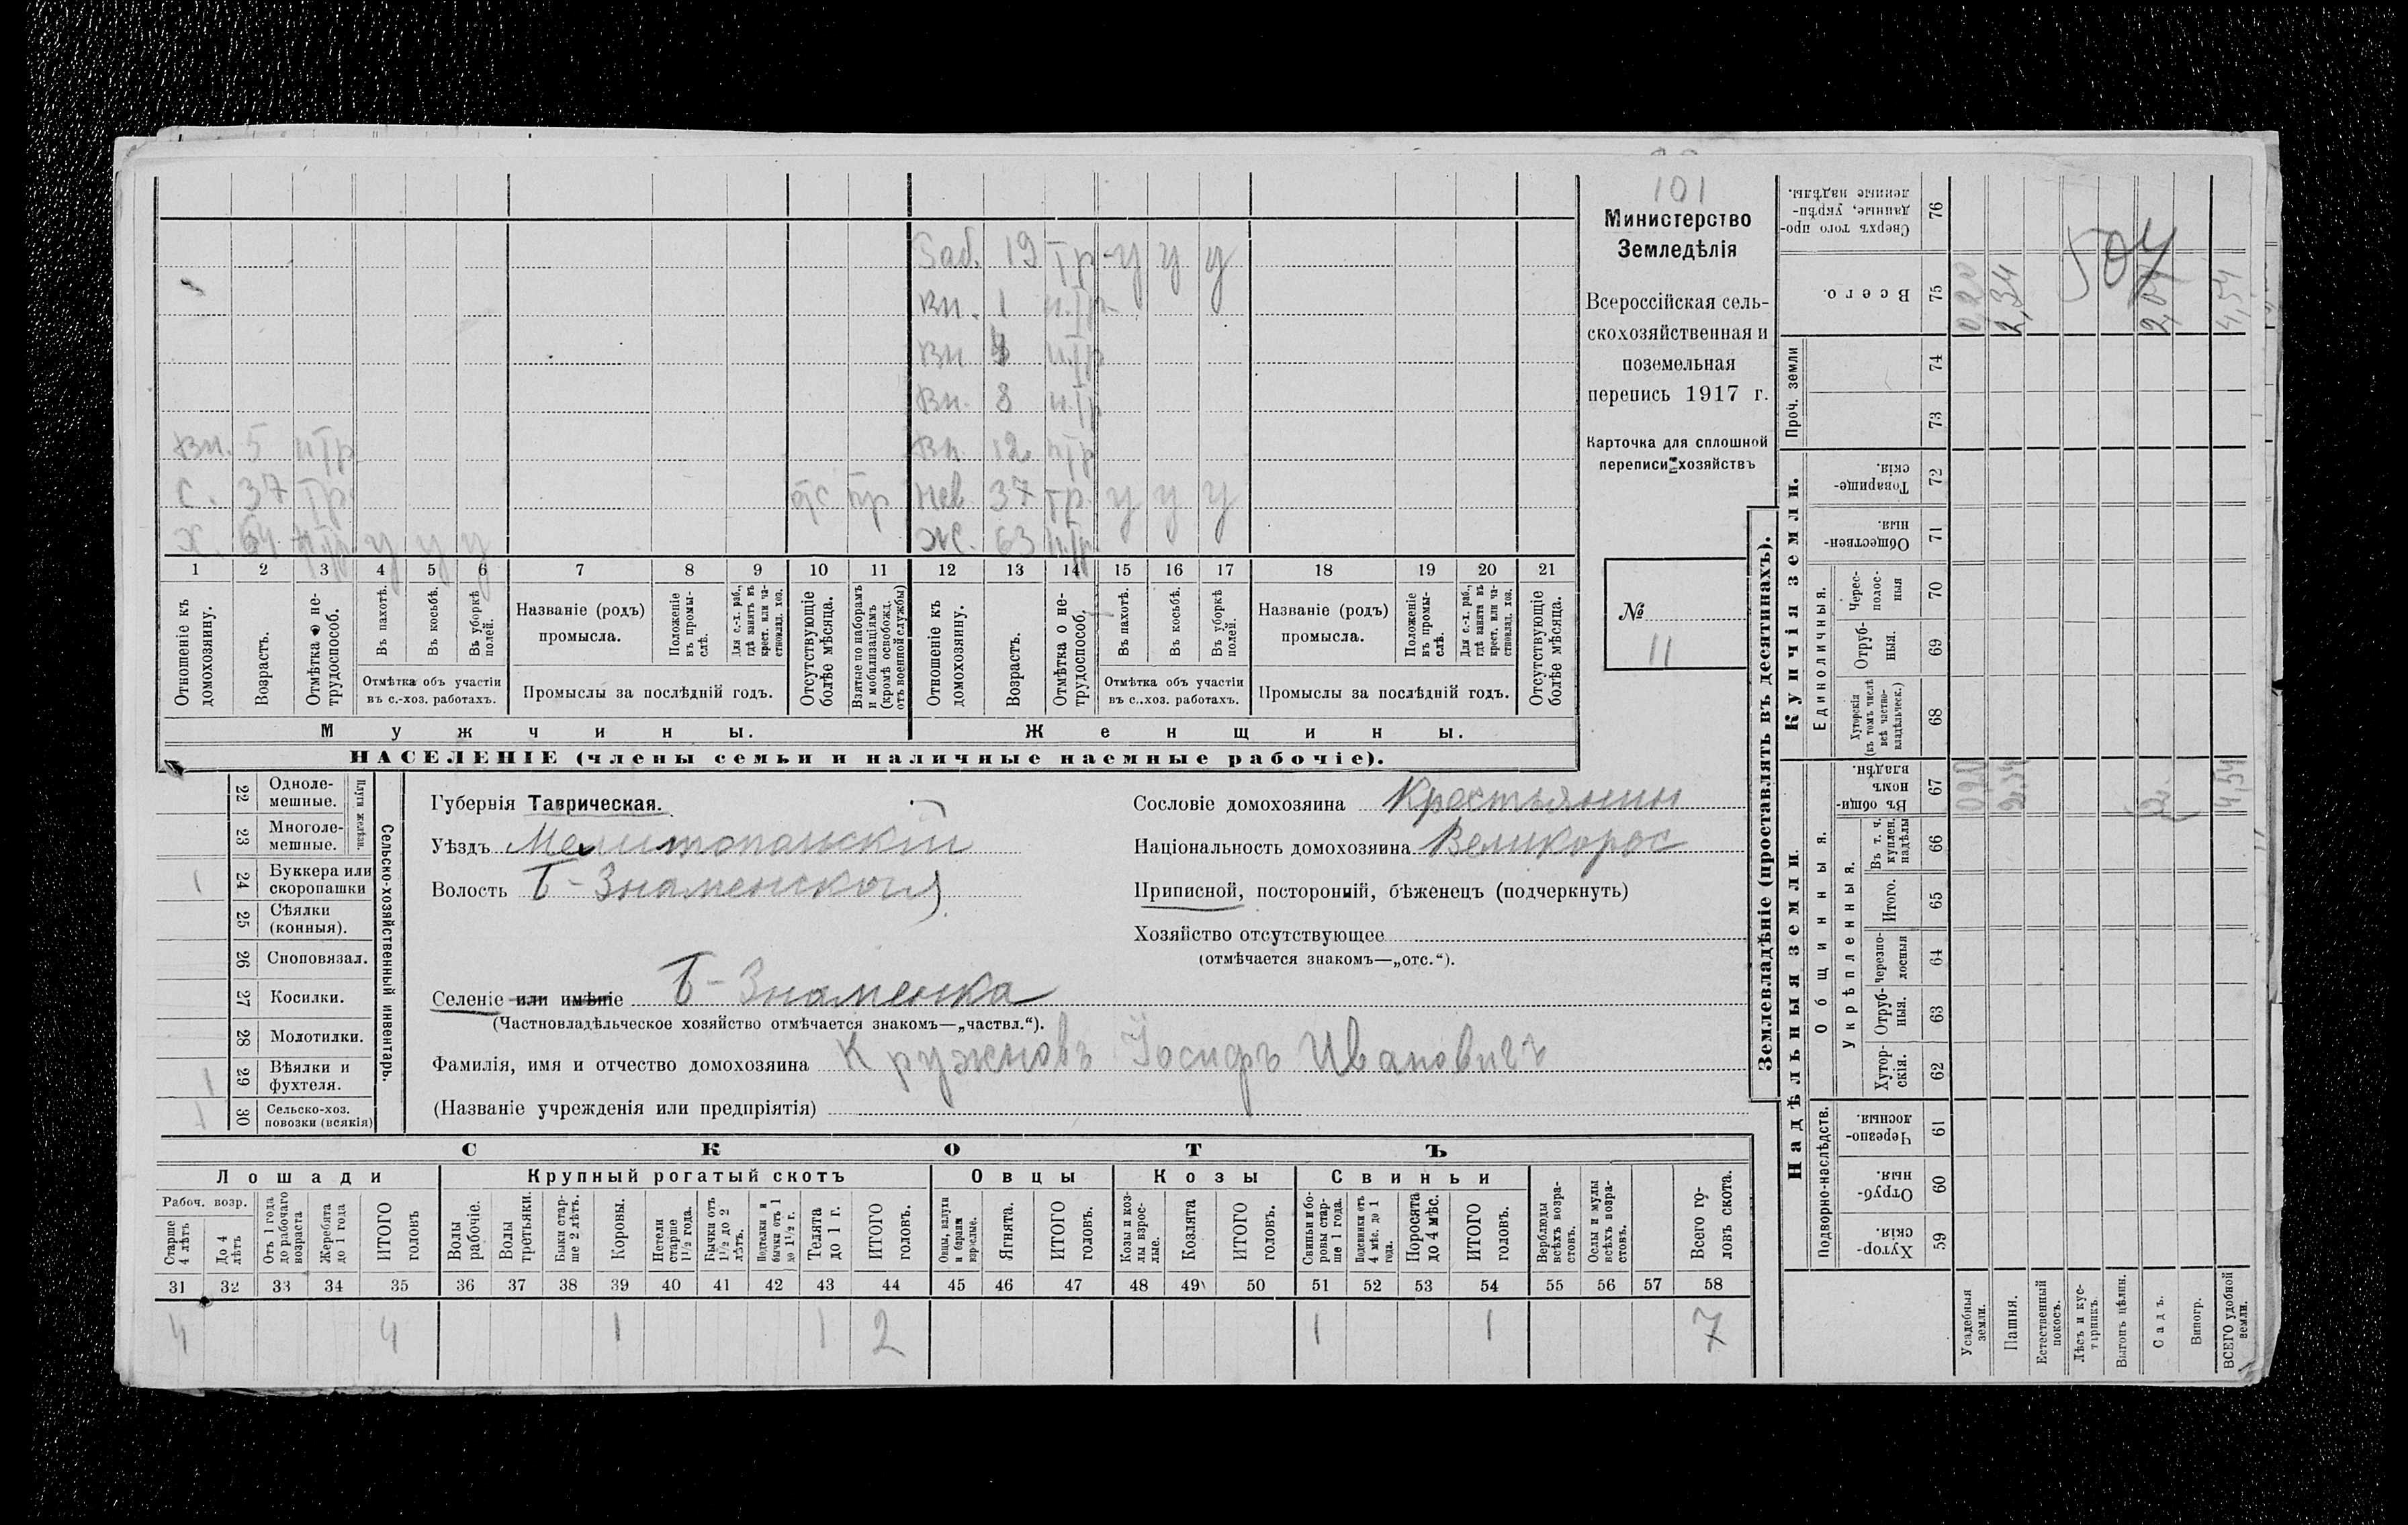 101
Министерство
Земледѣлія
Всероссійская сель-
скохозяйственная и
поземельная
перепись 1917 г.
Карточка для сплошной
переписи хозяйствъ
№
11
19 тр. у у у
вн. 1 н.тр.
вн. н.тр.
вн. 8 н.тр.
вн. 5 нтр вн. 12 нтр
с. 37 тр. отс пр нев. 37 тр. у у у
х. 64 н.тр. у у у ж. 63 н.тр.
1 2 3 4 5 6 7 8 9 10 11 12 13 14 15 16 17 18 19 20 21
Отношеніе къ домохозяину.
Возрастъ.
Отмѣтка о не-трудоспособ.
Въ пахотѣ.
Въ косьбѣ.
Въ уборкѣ полей.
Отмѣтка объ участіи
въ с.-хоз. работахъ.
Названіе (родъ)
промысла.
Положеніе въ промы-слѣ.
Для с.-х. раб., гдѣ занятъ въ крест. или ча-стновлад. хоз.
Промыслы за послѣдній годъ.
Отсутствующіе болѣе мѣсяца.
Взятые по наборамъ и мобилизаціямъ (кромѣ освобожд. отъ военной службы)
Отношеніе къ домохозяину.
Возрастъ.
Отмѣтка о не-трудоспособ.
Въ пахотѣ.
Въ косьбѣ.
Въ уборкѣ полей.
Отмѣтка объ участіи
въ с..хоз. работахъ.
Названіе (родъ)
промысла.
Положеніе въ промы-слѣ.
Для с.-х. раб., гдѣ занята въ крест. или ча-стновлад. хоз.
Промыслы за послѣдній годъ.
Отсутствующіе болѣе мѣсяца.
Мужчины. Женщины.
НАСЕЛЕНІЕ (члены семьи и наличные наемные рабочіе).
Сельско-хозяйственный инвентарь.
Плуги желѣзн.
22 Одноле-мешные.
23 Многоле-мешные.
1 24 Буккера или скоропашки
25 Сѣялки (конныя).
26 Сноповязал.
27 Косилки.
28 Молотилки.
1 29 Вѣялки и фухтеля.
1 30 Сельско-хоз. повозки (всякія)
Губернія Таврическая.
Уѣздъ Мелитопольскій
Волость Б-Знаменская
Селеніе или имѣніе Б-Знаменка
(Частновладѣльческое хозяйство отмѣчается знакомъ—„частвл.“).
Фамилія, имя и отчество домохозяина Кружновъ Іосифъ Ивановичъ
(Названіе учрежденія или предпріятія)
Сословіе домохозяина Крестьянин
Національность домохозяина Великорос
Приписной, посторонній, бѣженецъ (подчеркнуть)
Хозяйство отсутствующее
(отмѣчается знакомъ—„отс.“).
СКОТЪ
Лошади Крупный рогатый скотъ Овцы Козы Свиньи
Рабоч. возр.
Старше 4 лѣтъ
До 4 лѣтъ
Отъ 1 года до рабочаго возраста
Жеребята до 1 года
ИТОГО головъ
Волы рабочіе.
Волы третьяки.
Быки стар-ше 2 лѣтъ.
Коровы.
Нетели старше 1½ года.
Бычки отъ 1½ до 2 лѣтъ.
Подтелки и бычки отъ 1 до 1½ г.
Телята до 1 г.
ИТОГО головъ.
Овцы, валухи и бараны взрослые.
Ягнята.
ИТОГО головъ.
Козы и коз-лы взрос-лые.
Козлята
ИТОГО головъ.
Свиньи и бо-ровы стар-ше 1 года.
Подсвинки отъ 4 мѣс. до 1 года.
Поросята до 4 мѣс.
ИТОГО головъ.
Верблюды всѣхъ возра-стовъ.
Ослы и мулы всѣхъ возра-стовъ.
Всего го-ловъ скота.
31 32 33 34 35 36 37 38 39 40 41 42 43 44 45 46 47 48 49 50 51 52 53 54 55 56 57 58
4 4 1 1 2 1 1 7
Землевладѣніе (проставлять въ десятинахъ).
Надѣльныя земли. Купчія земли.
Подворно-наслѣдств.
Общинныя.
Укрѣпленныя.
Единоличныя.
Проч. земли
Хутор-скія. 59
Отруб-ныя. 60
Черезпо-лосныя 61
Хутор-скія. 62
Отруб-ныя. 63
Черезпо-лосныя 64
Итого. 65
Въ т. ч. куплен. надѣлы 66
Въ общин-номъ владѣн. 67
Хуторскія (въ томъ числѣ всѣ частно-владѣльческ.) 68
Отруб-ныя. 69
Черес-полос-ныя 70
Обществен-ныя. 71
Товарище-скія. 72
73
74
Всего. 75
Сверхъ того про-данные, укрѣп-ленные надѣлы. 76
Усадебныя земли. 0,20 0,20
Пашня. 2,34 2,34
Естественный покосъ.
Лѣсъ и кус-тарникъ.
Выгонъ цѣлин.
Садъ. 2
Виногр.
ВСЕГО удобной земли. 4,54 4,54
504